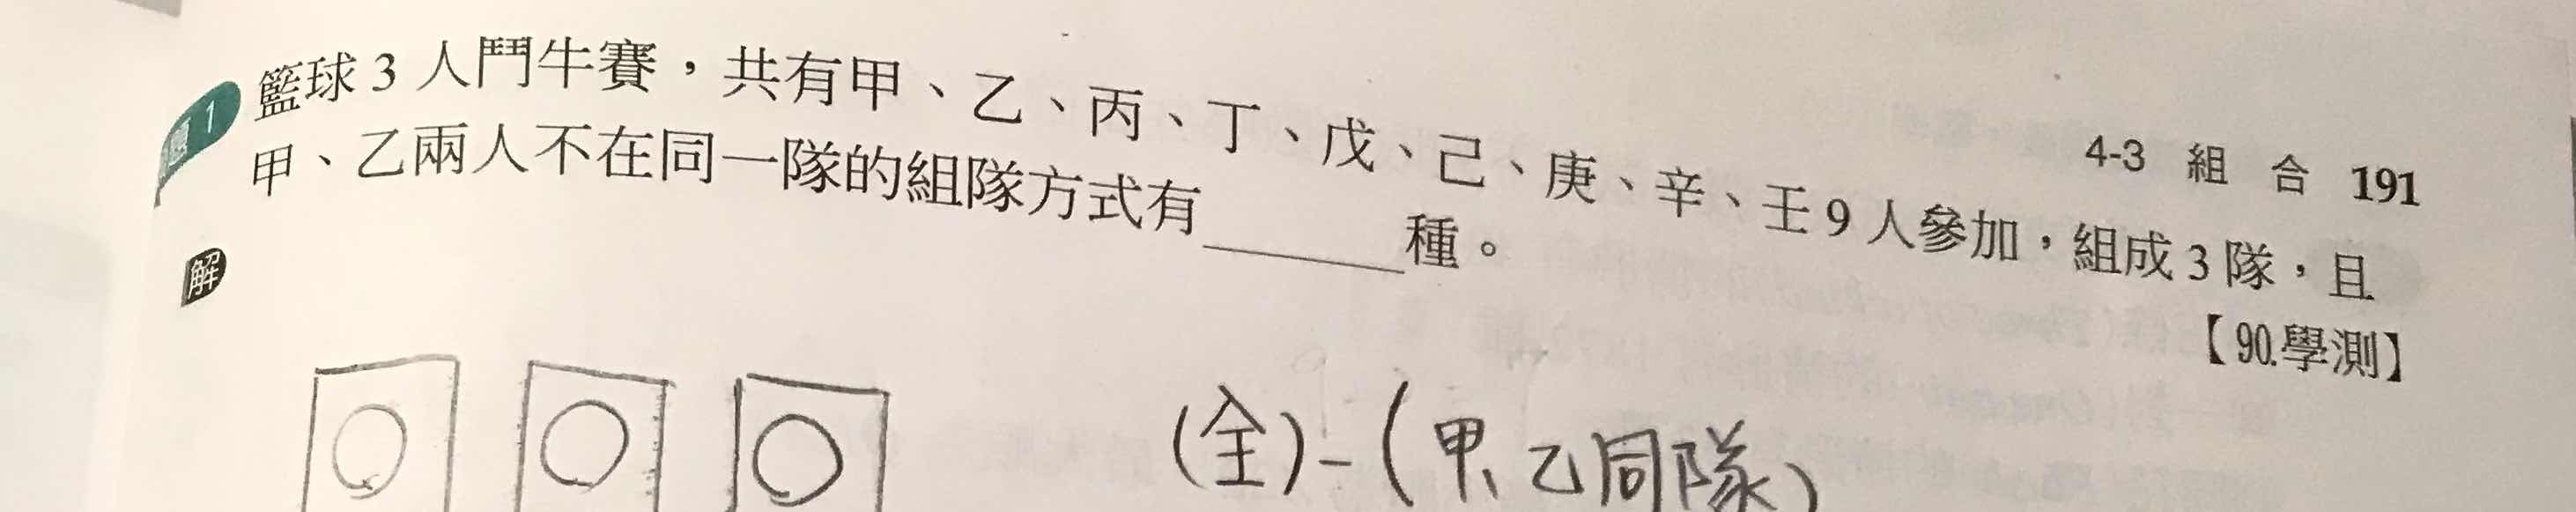 4-3 組 合 191
1 籃球 3 人鬥牛賽，共有甲、乙、丙、丁、戊、己、庚、辛、壬 9 人參加，組成 3 隊，且
甲、乙兩人不在同一隊的組隊方式有______種。
【90.學測】
解
(全)-(甲、乙同隊)